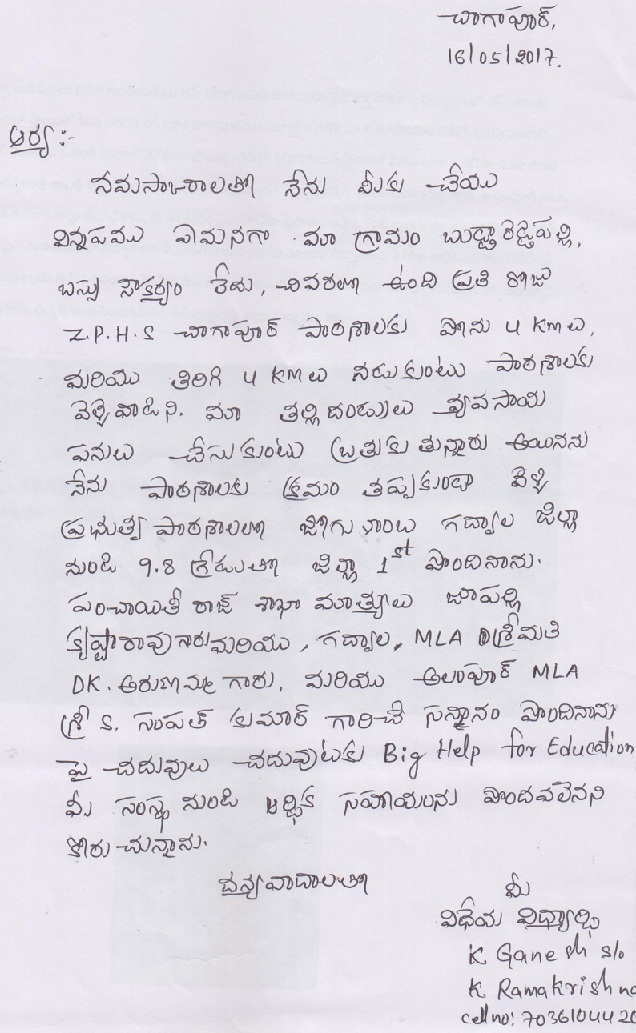 చాగాపూర్,
16/05/2017.
ఆర్య :-
నమస్కారాలతో నేను మీకు చేయు
విన్నపము ఏమనగా మా గ్రామం బుడ్డారెడ్డిపల్లి,
బస్సు సౌకర్యం లేదు, చివరలో ఉంది ప్రతి రోజు
Z.P.H.S చాగాపూర్ పాఠశాలకు పోను 4 KMలు,
మరియు తిరిగి 4 KMలు నడుకుంటు పాఠశాలకు
వెళ్ళేవాడిని. మా తల్లిదండ్రులు వ్యవసాయ
పనులు చేసుకుంటు బ్రతుకుతున్నారు అయినను
నేను పాఠశాలకు క్రమం తప్పకుండా వెళ్ళి
ప్రభుత్వ పాఠశాలలో జోగుళాంబ గద్వాల జిల్లా
నుండి 9.8 గ్రేడుతో జిల్లా 1st పొందినాను.
పంచాయితీ రాజ్ శాఖా మాత్యులు జూపల్లి
కృష్ణారావుగారు మరియు, గద్వాల, MLA శ్రీమతి
DK. అరుణమ్మ గారు, మరియు అలంపూర్ MLA
శ్రీ S. సంపత్ కుమార్ గారిచే సన్మానం పొందినాను
పై చదువులు చదువుటకు Big Help for Education
మీ సంస్థ నుండి ఆర్థిక సహాయంను పొందవలెనని
కోరు చున్నాను.
ధన్యవాదాలతో
మీ
విధేయ విద్యార్థి
K Ganesh s/o
K Ramakrishna
cell no: 7036104420